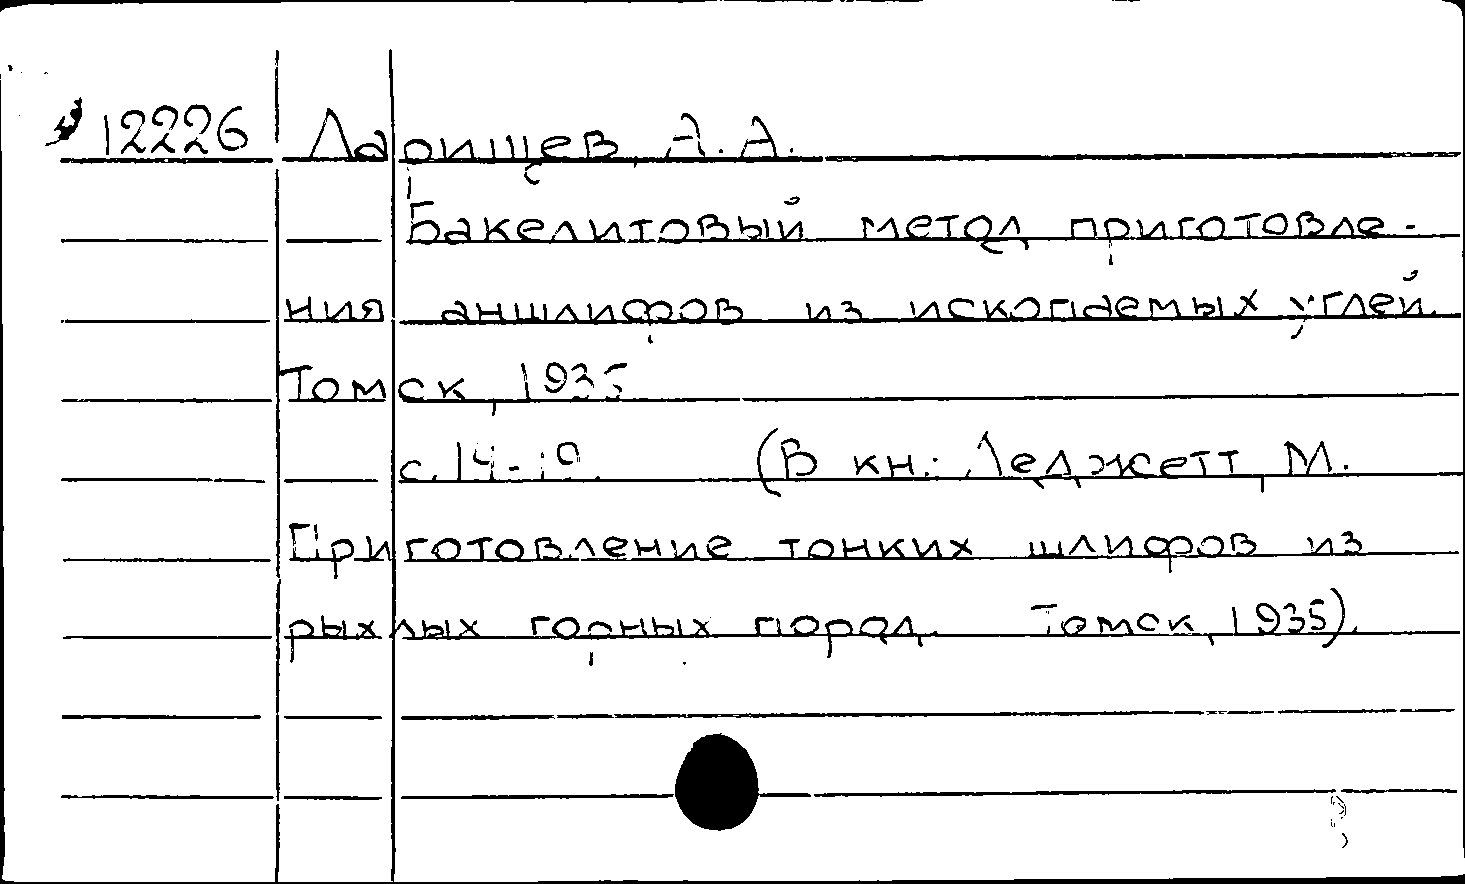 12226 Ларищев, А. А.
Бакелитовый метод приготовле-
ния аншлифов из ископаемых углей.
Томск, 1935
с. 14-19. (В кн.: Леджетт, М.
Приготовление тонких шлифов из
рыхлых горных пород. Томск, 1935).